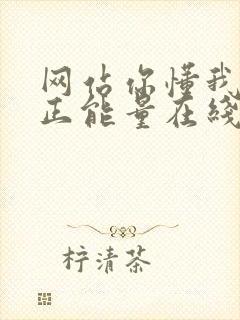 网站你懂我
正能量在线
柠清茶